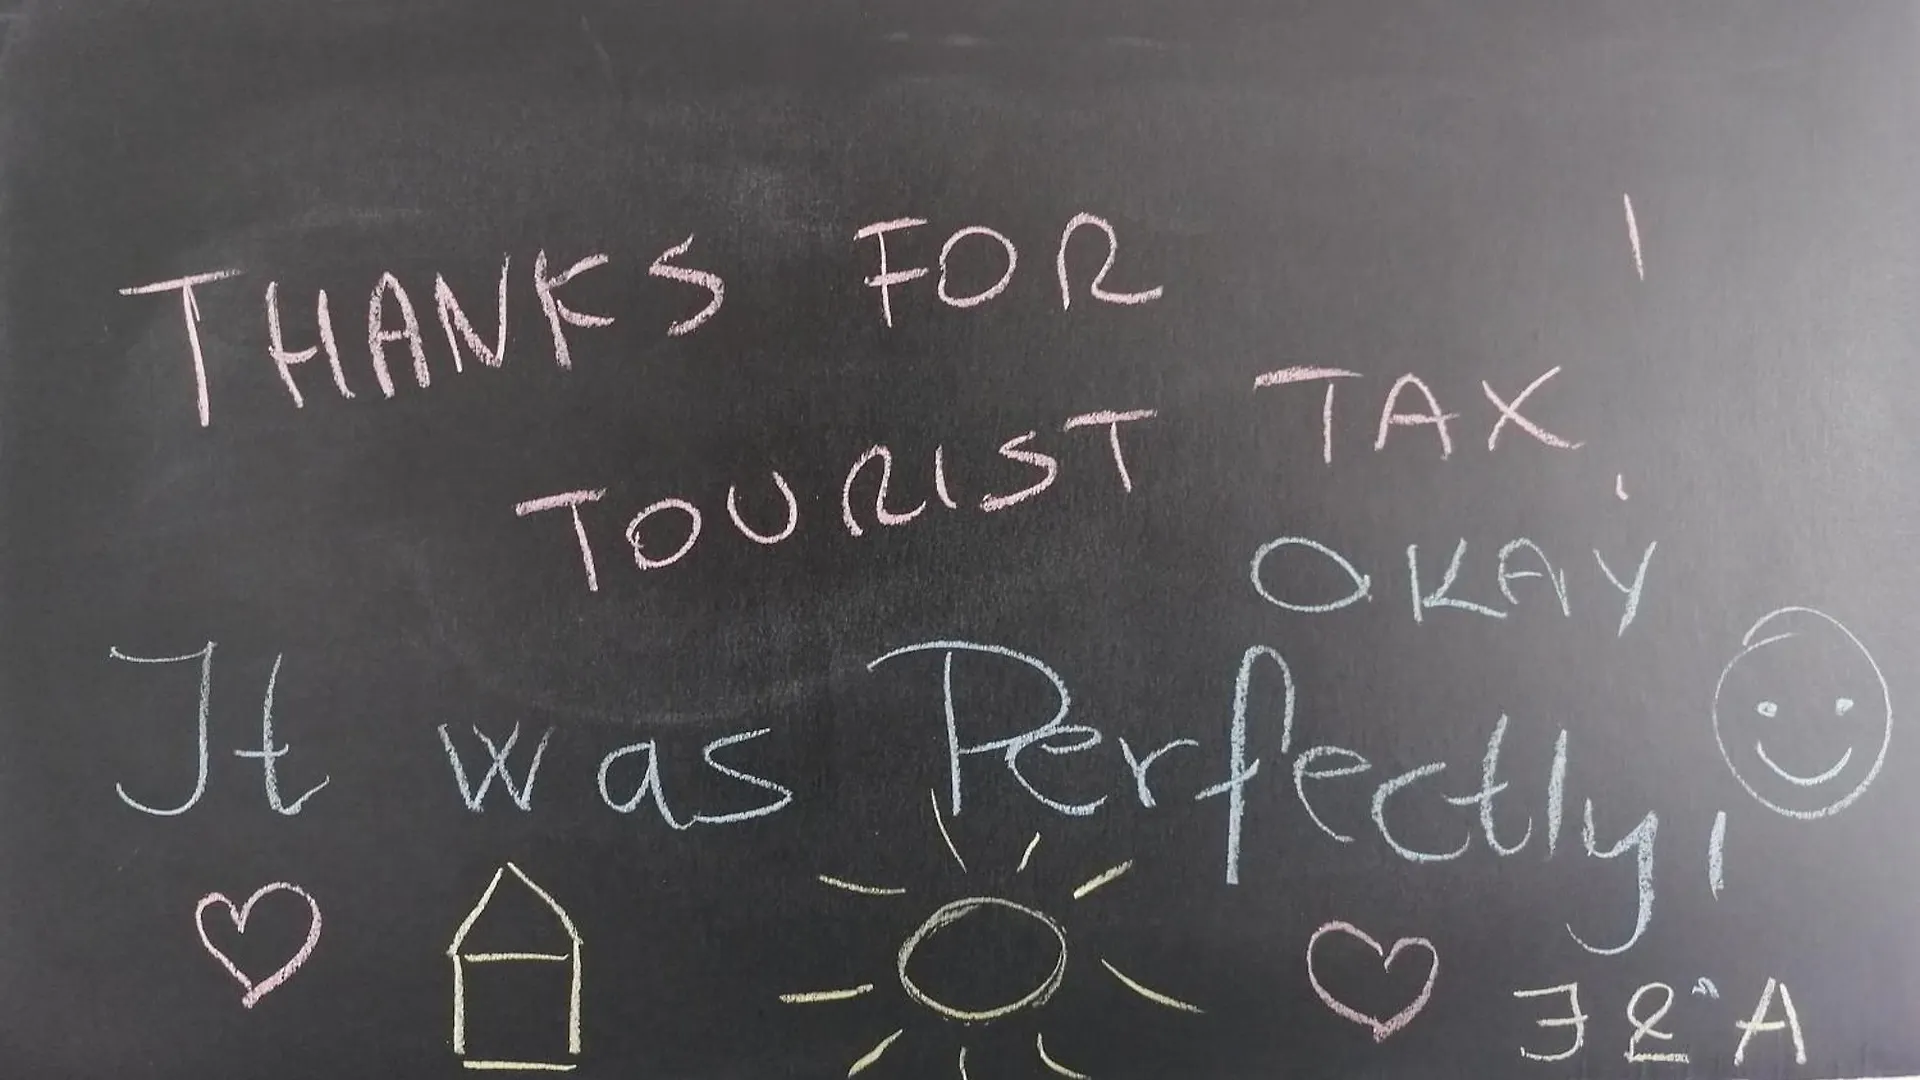 THANKS FOR
TOURIST TAX
OKAY
It was Perfectly!
J & A